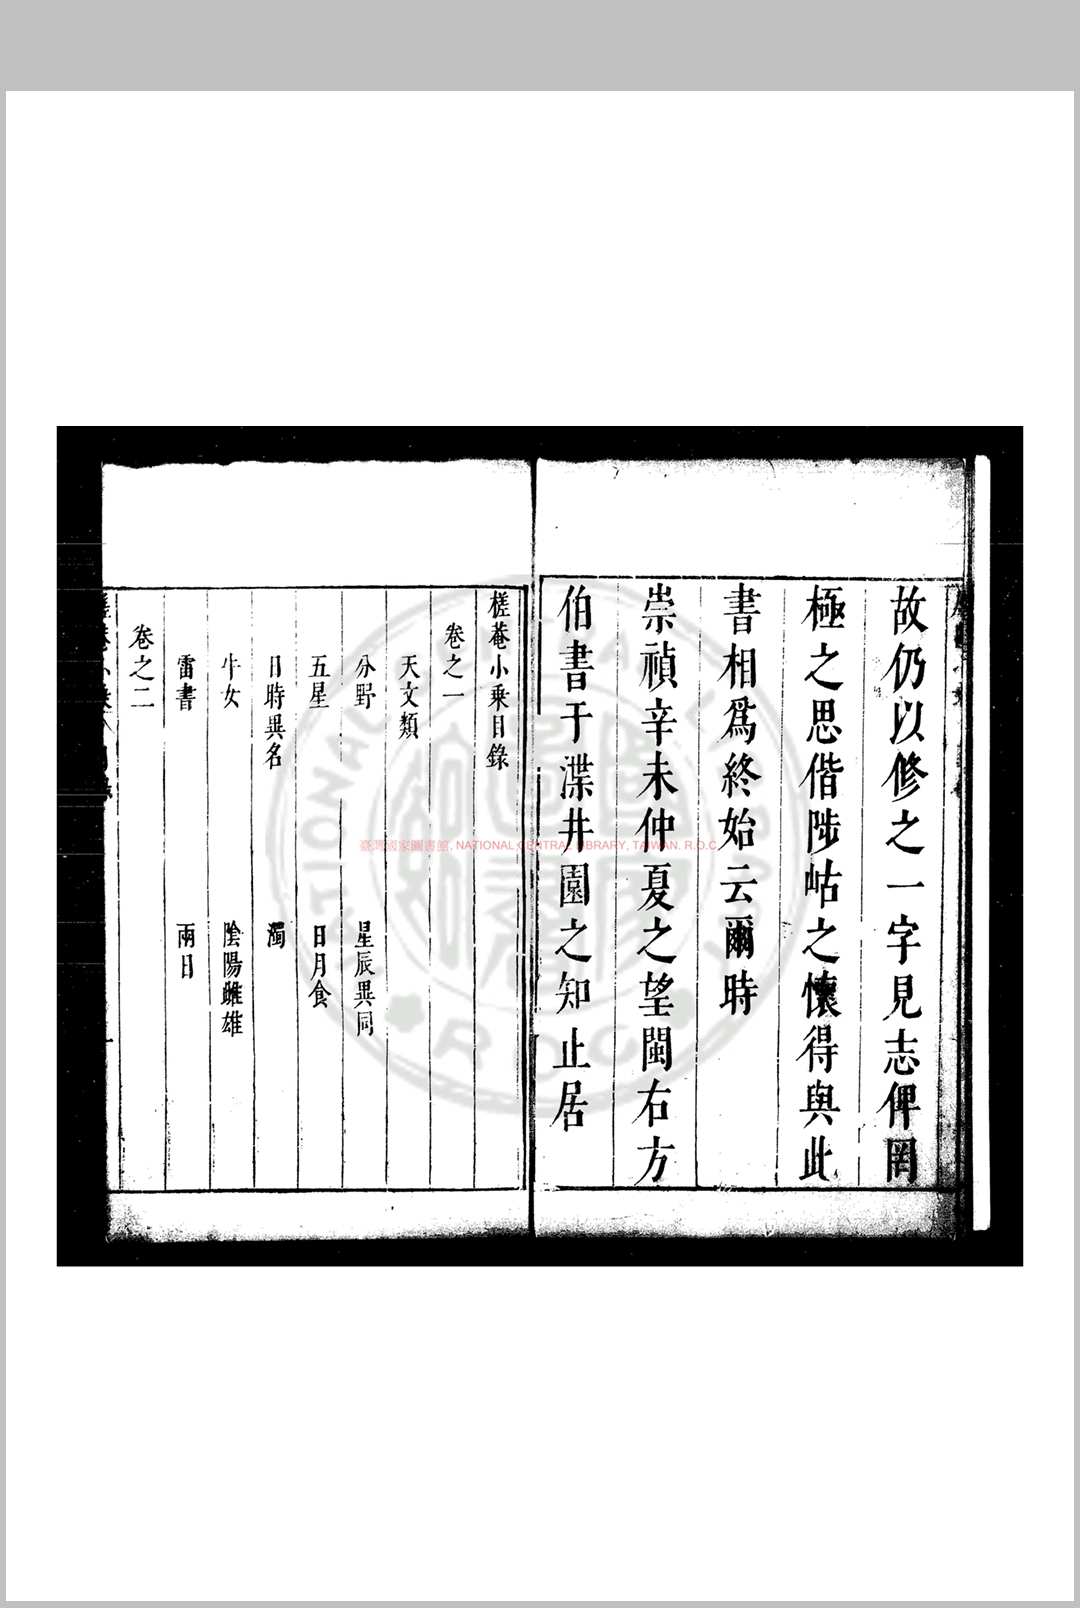 故仍以修之一字見志俾罔
極之思偕陟岵之懷得與此
書相爲終始云爾時
崇禎辛未仲夏之望閩右方
伯書于渫井園之知止居
槎菴小乘目錄
卷之一
天文類
分野 星辰異同
五星 日月食
日時異名 濁
牛女 陰陽雌雄
雷書 兩日
卷之二
臺灣國家圖書館, NATIONAL CENTRAL LIBRARY, TAIWAN, R.O.C.